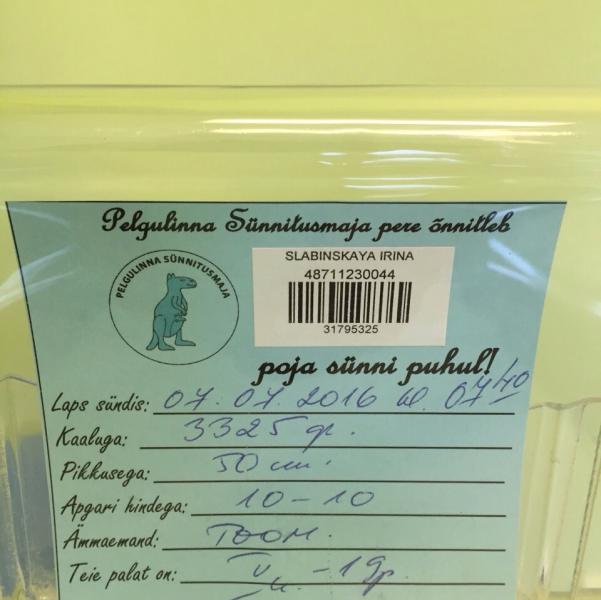 Pelgulinna Sünnitusmaja pere õnnitleb
PELGULINNA SÜNNITUSMAJA
SLABINSKAYA IRINA
48711230044
31795325
poja sünni puhul!
Laps sündis: 07.07.2016 kl. 07 40
Kaaluga: 3325 gr.
Pikkusega: 50 cm.
Apgari hindega: 10-10
Ämmaemand: TOOM.
Teie palat on: